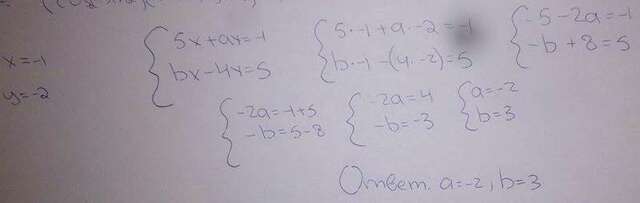 x=-1
y=-2
{ 5x+ax=-1
bx-4x=5
{ 5·-1+a·-2=-1
b·-1-(4·-2)=5
{ -5-2a=-1
-b+8=5
{ -2a=-1+5
-b=5-8
{ -2a=4
-b=-3
{ a=-2
b=3
Ответ. a=-2, b=3